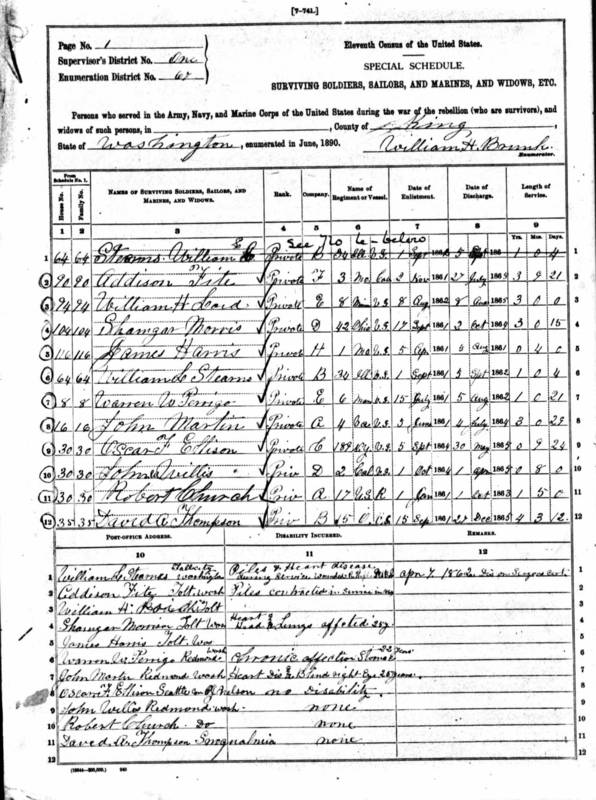 [7-741.]
Page No. 1
Supervisor's District No. One
Enumeration District No.
Eleventh Census of the United States.
SPECIAL SCHEDULE.
SURVIVING SOLDIERS, SAILORS, AND MARINES, AND WIDOWS, ETC.
Persons who served in the Army, Navy, and Marine Corps of the United States during the war of the rebellion (who are survivors), and
widows of such persons, in , County of King,
State of Washington, enumerated in June, 1890. William H. Brunk
Enumerator.
From Schedule No. 1.
House No. Family No. NAMES OF SURVIVING SOLDIERS, SAILORS, AND MARINES, AND WIDOWS. Rank. Company. Name of Regiment or Vessel. Date of Enlistment. Date of Discharge. Length of Service.
Yrs. Mos. Days.
1 2 3 4 5 6 7 8 9
See No 6 below
1 64 64 Stearns William Private B 1 Sept 186 5 1 0 4 1
2 90 90 Addison Private F 3 Mo. Cav 2 Nov 1861 27 July 186 3 9 21 2
3 94 94 William H. Private E 8 U.S. 8 Aug 1862 8 1865 3 0 0 3
4 104 104 Shamgar Morris Private D 42 Ohio V.S. 17 Sept 1861 2 Oct 1864 3 0 15 4
5 116 116 James Harris Private H 1 Mo V.S. 5 Apr 1861 5 Aug 1861 0 4 0 5
6 64 64 William Stearns Private B 34 Ill V.S. 1 Sept 1861 5 Sept 1862 1 0 4 6
7 8 8 Warren W. Perrigo Private E 6 V.S. 15 July 1861 5 Aug 1862 1 0 21 7
8 16 16 John Martin Private A 4 V.S. 3 June 1861 4 July 1864 3 0 8
9 30 30 Oscar F. Ellison Private C 189 V.S. 5 Sept 1864 30 May 1865 0 9 24 9
10 30 30 John Willis Priv D 2 Cal V.S. 1 Oct 1864 1 Apr 1865 0 8 0 10
11 30 30 Robert Church Priv A 17 U.S. R 1 Jan 1861 1 Oct 1863 1 5 0 11
12 35 35 David A. Thompson Priv B 15 15 Sep 1861 27 Dec 1865 4 3 12 12
POST-OFFICE ADDRESS. DISABILITY INCURRED. REMARKS.
10 11 12
1 William Stearns Washington Piles & Heart disease
during Service Wounded Apr 7 1862 Dis on Surgeons 1
2 Addison Tolt Wash Piles contracted in 2
3 William H. Tolt 3
4 Shamgar Morris Tolt Wash Heart & Lungs affected 4
5 James Harris Tolt Was 5
6 Warren W. Perrigo Redmond Wash Chronic affection Stomach 22 years 6
7 John Martin Redmond Wash Heart Dis & Blind right Eye 7
8 Oscar F. Ellison Seattle Nelson no Disability. 8
9 John Willis Redmond Wash. none 9
10 Robert Church Do none 10
11 David A. Thompson Snoqualmia none 11
12 12